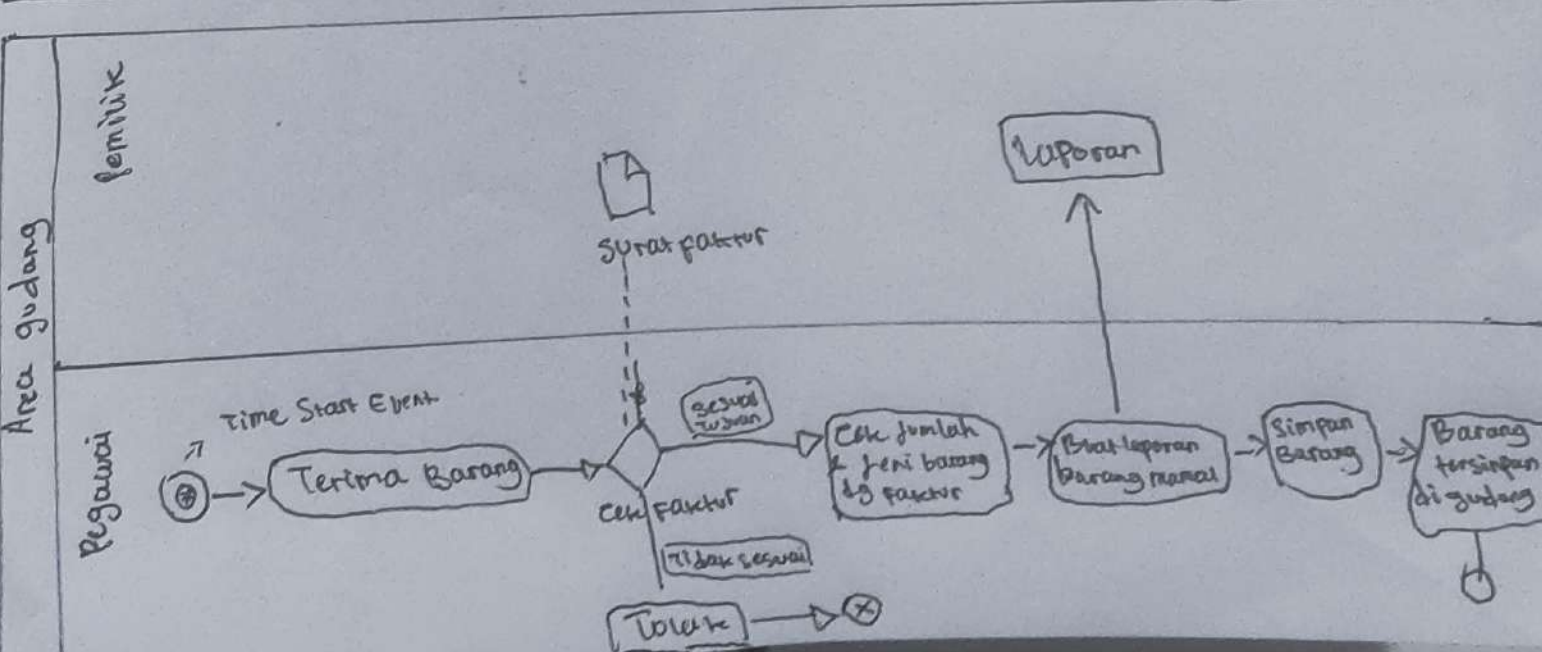 Area gudang
Pemilik
Laporan
Surat faktur
Pegawai
Time Start Event
Terima Barang
Cek faktur
Sesuai
Tujuan
Tidak sesuai
Tolak
Cek Jumlah
& Jeni barang
dg faktur
Buat laporan
barang manual
Simpan
Barang
Barang
tersinpan
di gudang